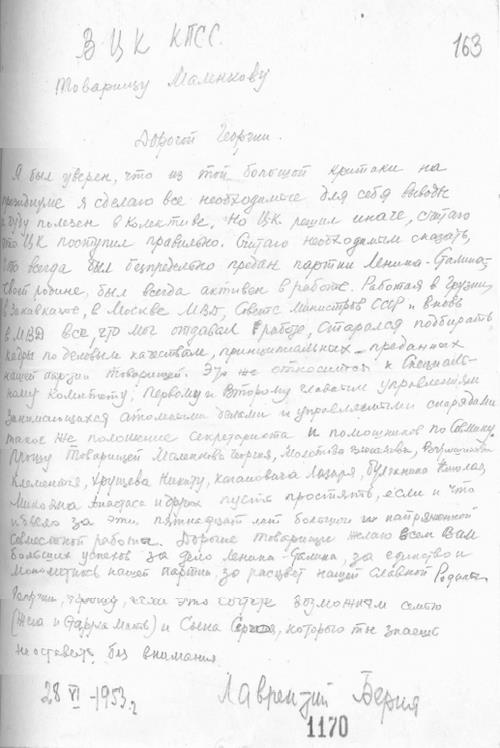 В ЦК КПСС.
163
Товарищу Маленкову
Дорогой Георгий.
Я был уверен, что из той большой критики на
президиуме я сделаю все необходимые для себя выводы
и буду полезен в колективе. Но ЦК решил иначе, считаю
что ЦК поступил правильно. Считаю необходимым сказать,
что всегда был беспредельно предан партии Ленина-Сталина,
своей родине, был всегда активен в работе. Работая в Грузии,
в Закавказье, в Москве МВД, Совете Министров СССР и вновь
в МВД все, что мог отдавал работе, старался подбирать
кадры по деловым качествам, принципиальных преданных
нашей партии товарищей. Это же относится к Специаль-
ному Комитету, Первому и Второму главным управлениям
занимающихся атомными делами и управляемыми снарядами
такое же положение Секретариата и помощников по Совмину.
Прошу Товарищей Маленкова Георгия, Молотова Вячеслава, Ворошилова
Клементия, Хрущева Никиту, Кагановича Лазаря, Булганина Николая,
Микояна Анастаса и других пусть простят, если и что
и было за эти пятнадцать лет большой и напряженной
совместной работы. Дорогие товарищи желаю всем Вам
больших успехов за дело Ленина-Сталина, за единство и
монолитность нашей партии за расцвет нашей Славной Родины.
Георгий, прошу, если это сочтете возможным семью
(жена и старуха мать) и сына Серго, которого ты знаешь
не оставить без внимания.
28 VI-1953г.
Лаврентий Берия
1170